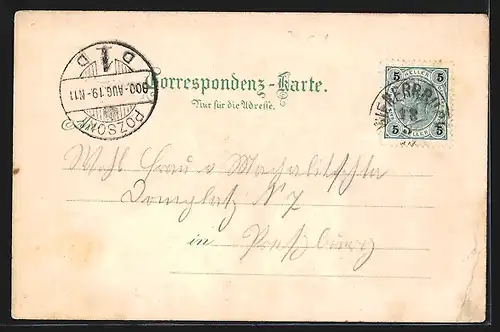 Correspondenz-Karte.
Nur für die Adresse.
5 HELLER 5
5 HELLER 5
WIENERBRUCK
18
POZSONY
900. AUG. 19-N11
D 1 D
Wohl Frau v
Domplatz N 7
in Preßburg